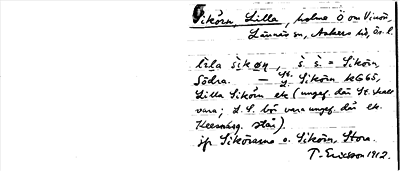 Sikörn, Lilla, holme Ö om Vinön,
Lännäs sn, Askers hd, Ör. l.
lila sìkøn, s̀ s̀ = Sikörn,
Södra. — Sikörn kG65,
Lilla Sikörn ek (ungef. där St. skall
vara; L. S. bör vara ungef. där ek.
står).
jfr Sikörarna o. Sikörn, Stora.
T. Ericsson 1912.